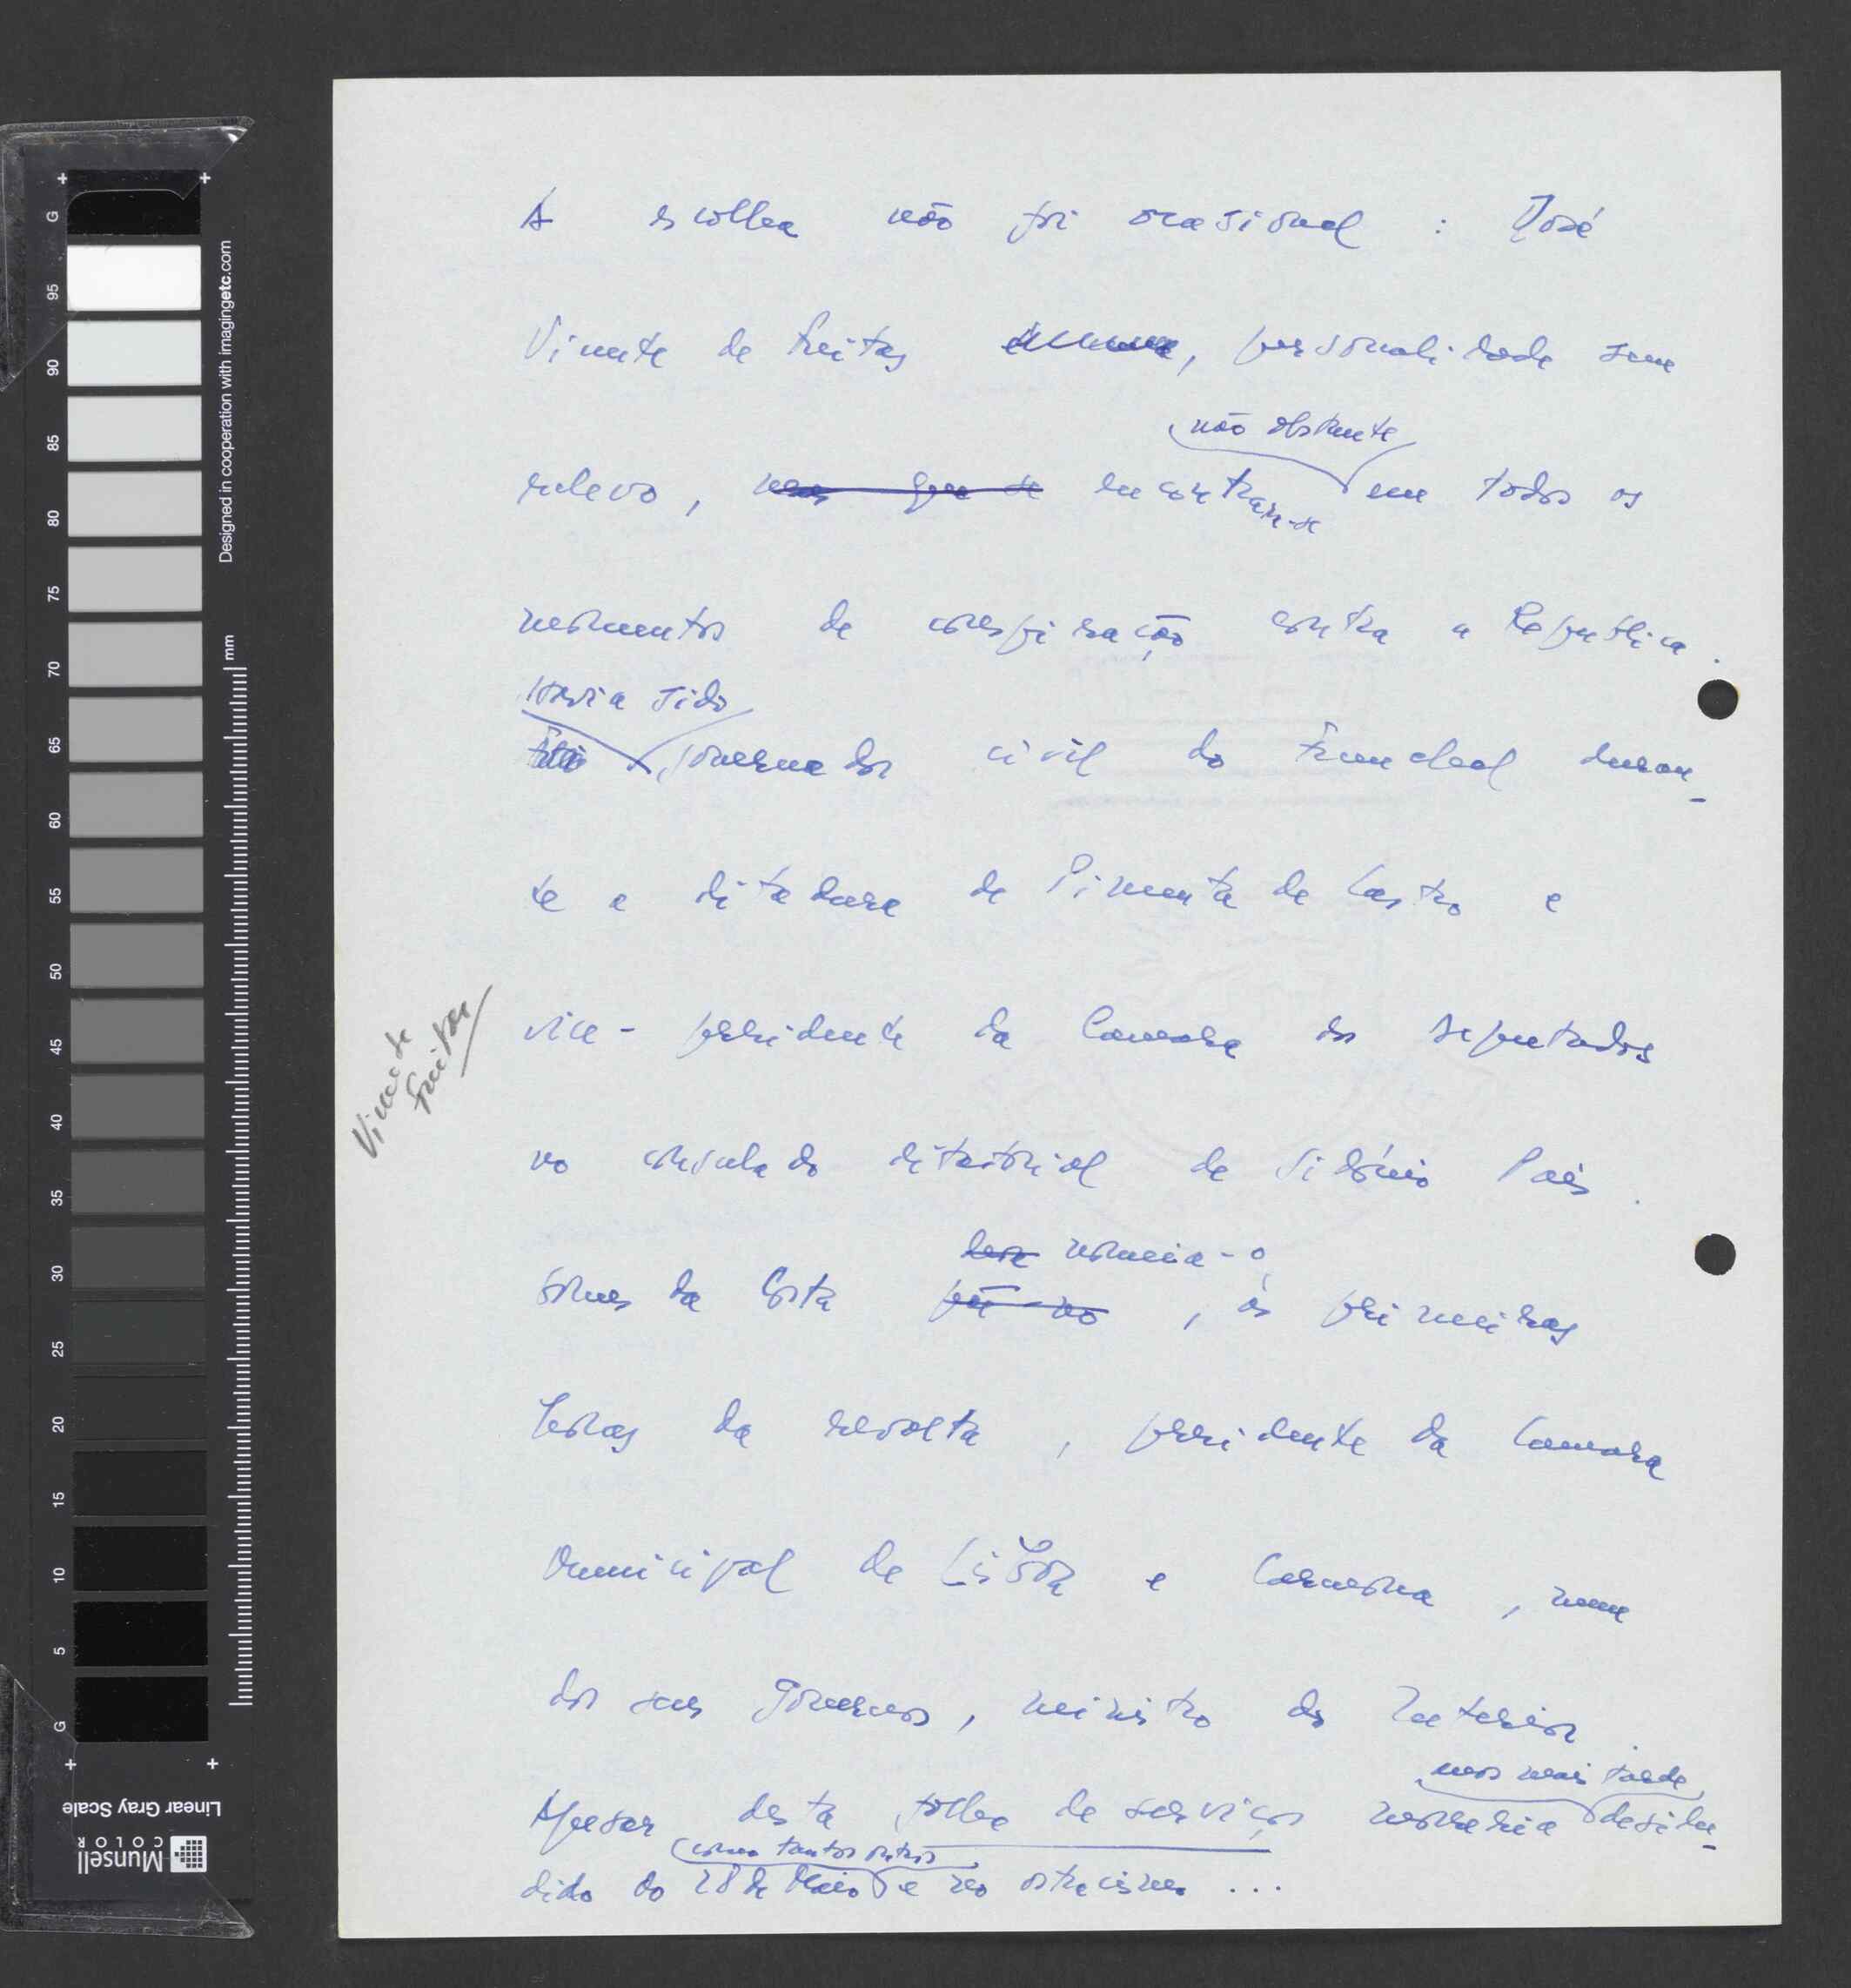 A escolha não foi ocasional : José
Vicente de Freitas , personalidade sem
não obstante
relevo , mas que se encontrar-se em todos os
momentos de conspiração contra a Republica.
Havia sido
Foi governador civil do Funchal duran-
te a ditadura de Pimenta de Castro e
vice-presidente da Camara dos deputados
Vicente
Freitas
no consulado ditatorial de Sidónio Pais.
nomeia-o
Gomes da Costa põe-no , às primeiras
horas da revolta , presidente da Camara
Municipal de Lisboa e Carmona , num
dos seus Governos, ministro do Interior.
anos mais tarde
Apesar desta folha de serviços morreria desilu-
como tantos outros
dido do 28 de Maio e no ostracismo ...
G
95
90
85
80
75
70
65
60
55
50
45
40
35
30
25
20
15
10
5
G
mm
Designed in cooperation with imagingetc.com
Linear Gray Scale
Munsell
COLOR